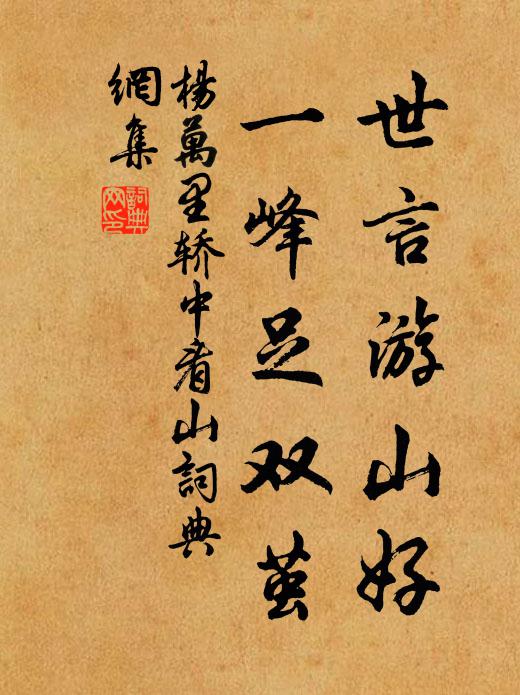 世言游山好
一峰足双茧
楊萬里轿中看山詞典
網集
詞典
网印